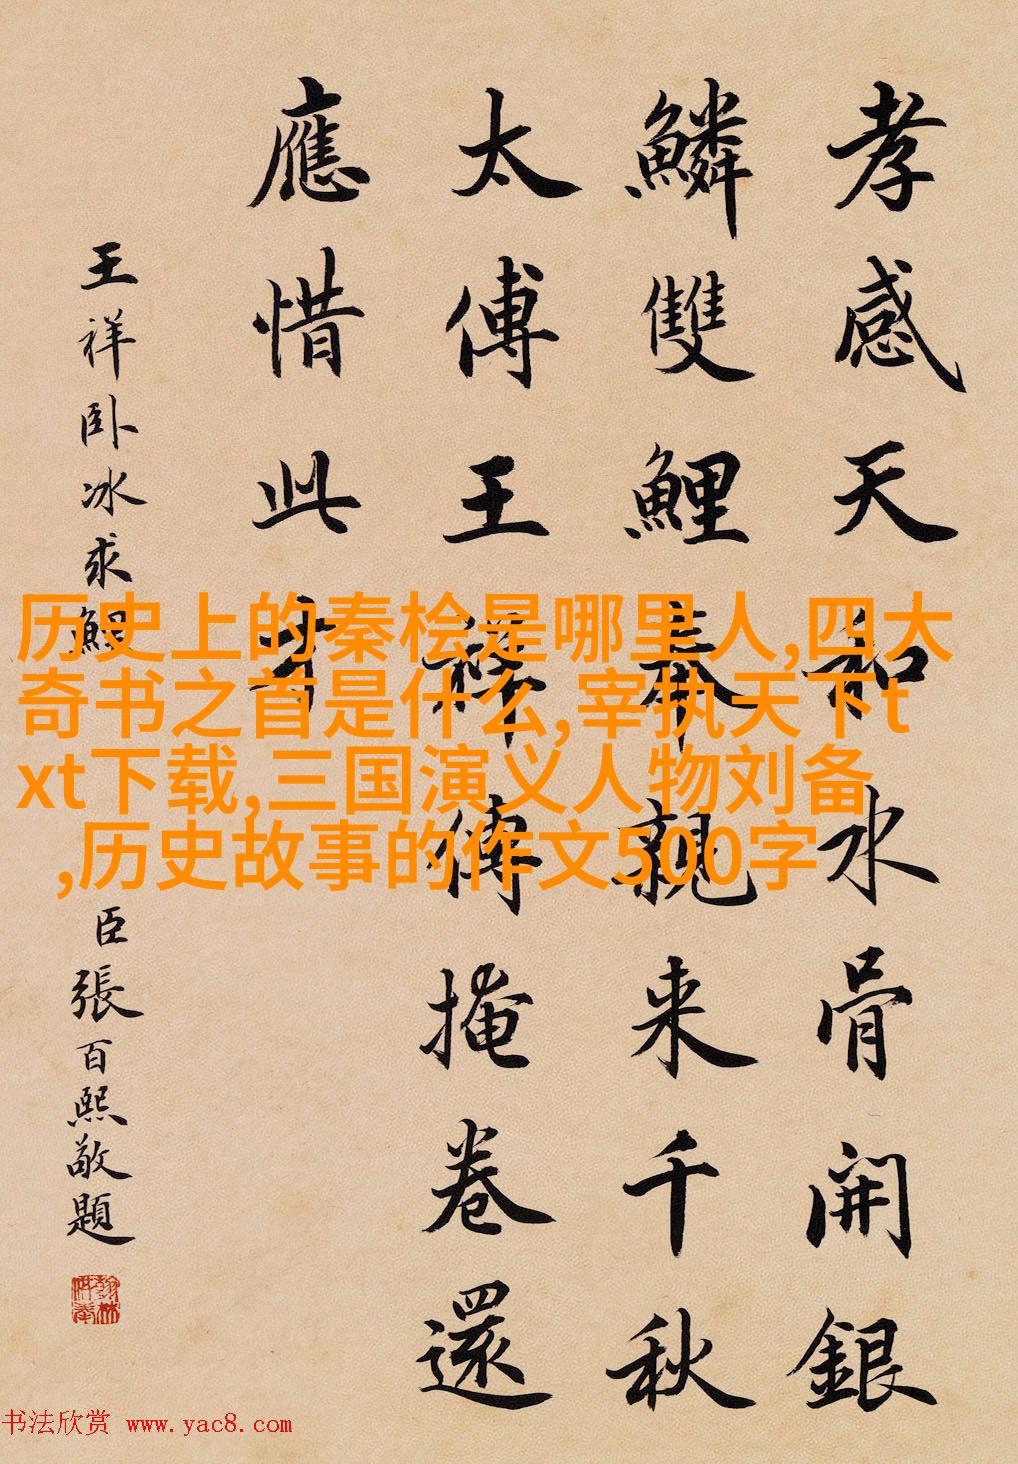 孝感天和水骨開銀
鱗雙鯉奉親来千秋
太傅王祥傳掩卷還
應惜此才
王祥卧冰求鯉
臣張百熙敬題
历史上的秦桧是哪里人,四大
奇书之首是什么,宰执天下t
xt下载,三国演义人物刘备
,历史故事的作文500字
书法欣赏 www.yac8.com